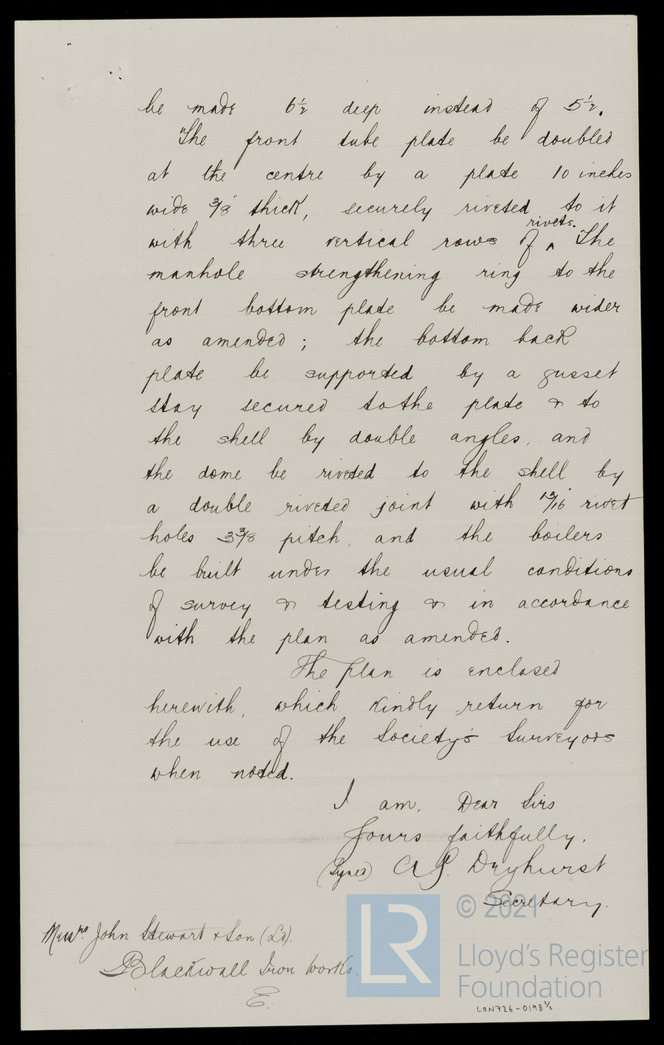 be made 6½ deep instead of 5½.
The front tube plate be doubled
at the centre by a plate 10 inches
wide 3/8" thick, securely riveted to it
rivets.
with three vertical rows of ^ The
manhole strengthening ring to the
front bottom plate be made wider
as amended; the bottom back
plate be supported by a gusset
stay secured to the plate & to
the shell by double angles, and
the dome be riveted to the shell by
a double riveted joint with 13/16" rivet
holes 3 3/8 pitch, and the boilers
be built under the usual conditions
of survey & testing & in accordance
with the plan as amended.
The plan is enclosed
herewith, which kindly return for
the use of the Society's Surveyors
when noted.
I am, Dear Sirs
Yours faithfully,
(Signed) A.G. Dryhurst
Secretary.
Messrs John Stewart & Son (Ld).
Blackwall Iron Works.
E.
LR © 2021
Lloyd's Register
Foundation
LON726-0198 2/2